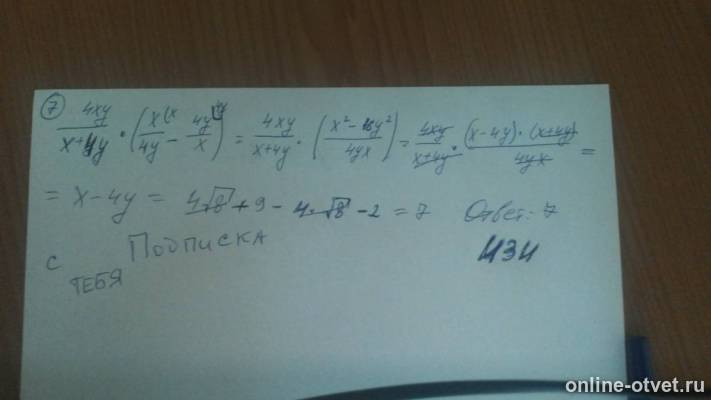 7 4xy/(x+4y) · (x(x/4y − 4y(4y/x) = 4xy/(x+4y) · (x²−16y²/4yx) = 4xy/(x+4y) · (x−4y)·(x+4y)/4yx =
= x−4y = 4√8 + 9 − 4·√8 − 2 = 7 Ответ: 7
С Подписка
ТЕБЯ
online-otvet.ru